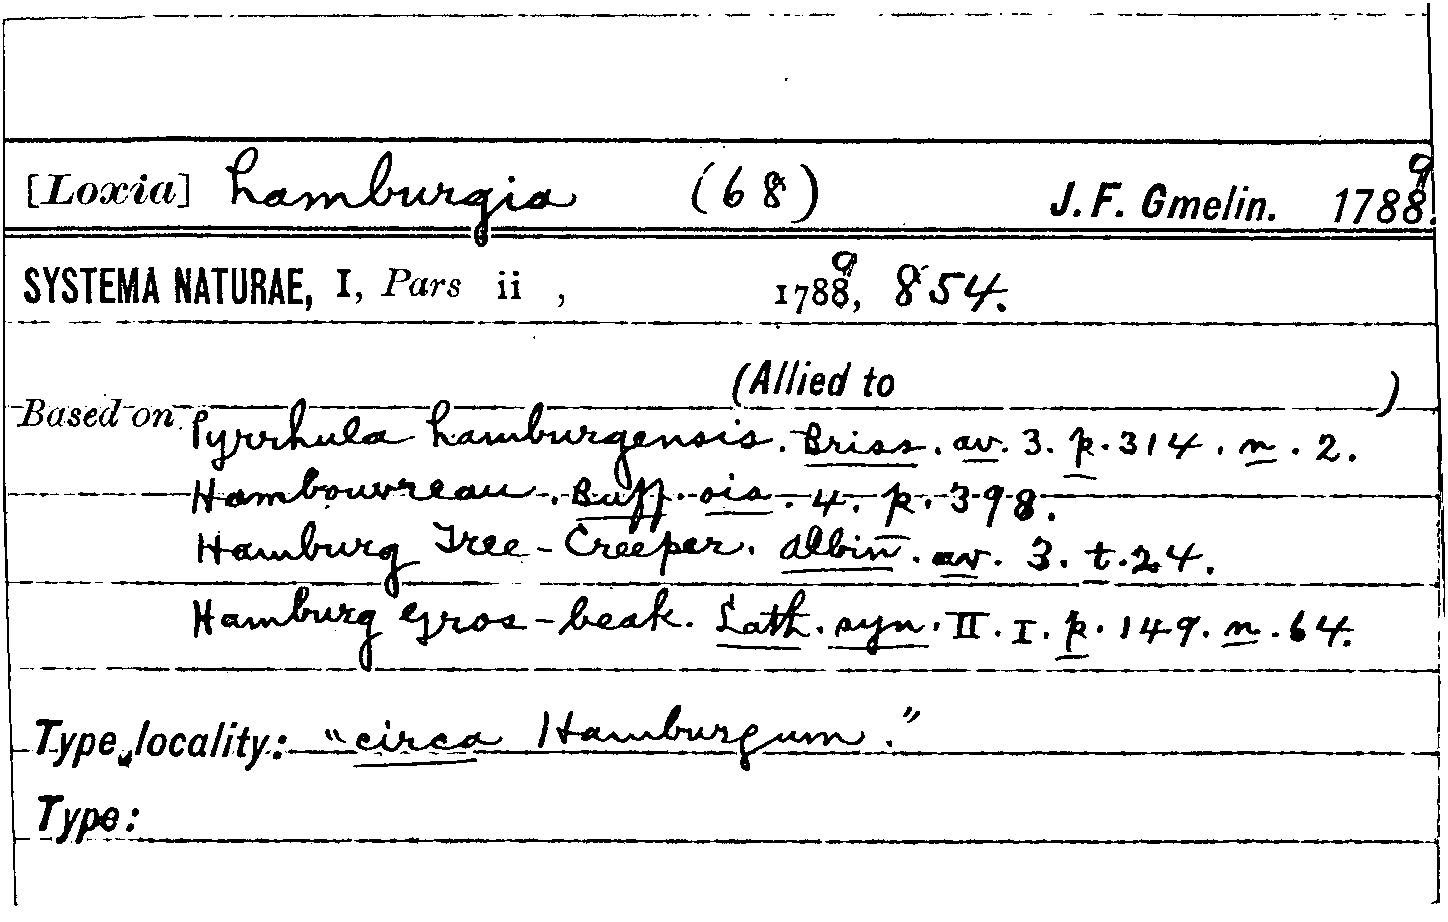 [Loxia] hamburgia (68) J. F. Gmelin. 1788 9.
SYSTEMA NATURAE, I, Pars ii , 1788 9, 854.
(Allied to )
Based on Pyrrhula hamburgensis. Briss. av. 3. p. 314. n. 2.
Hambouvreau. Buff. ois. 4. p. 398.
Hamburg Tree-Creeper. Albin. av. 3. t. 24.
Hamburg Gros-beak. Lath. syn. II. I. p. 149. n. 64.
Type locality: "circa Hamburgum."
Type: